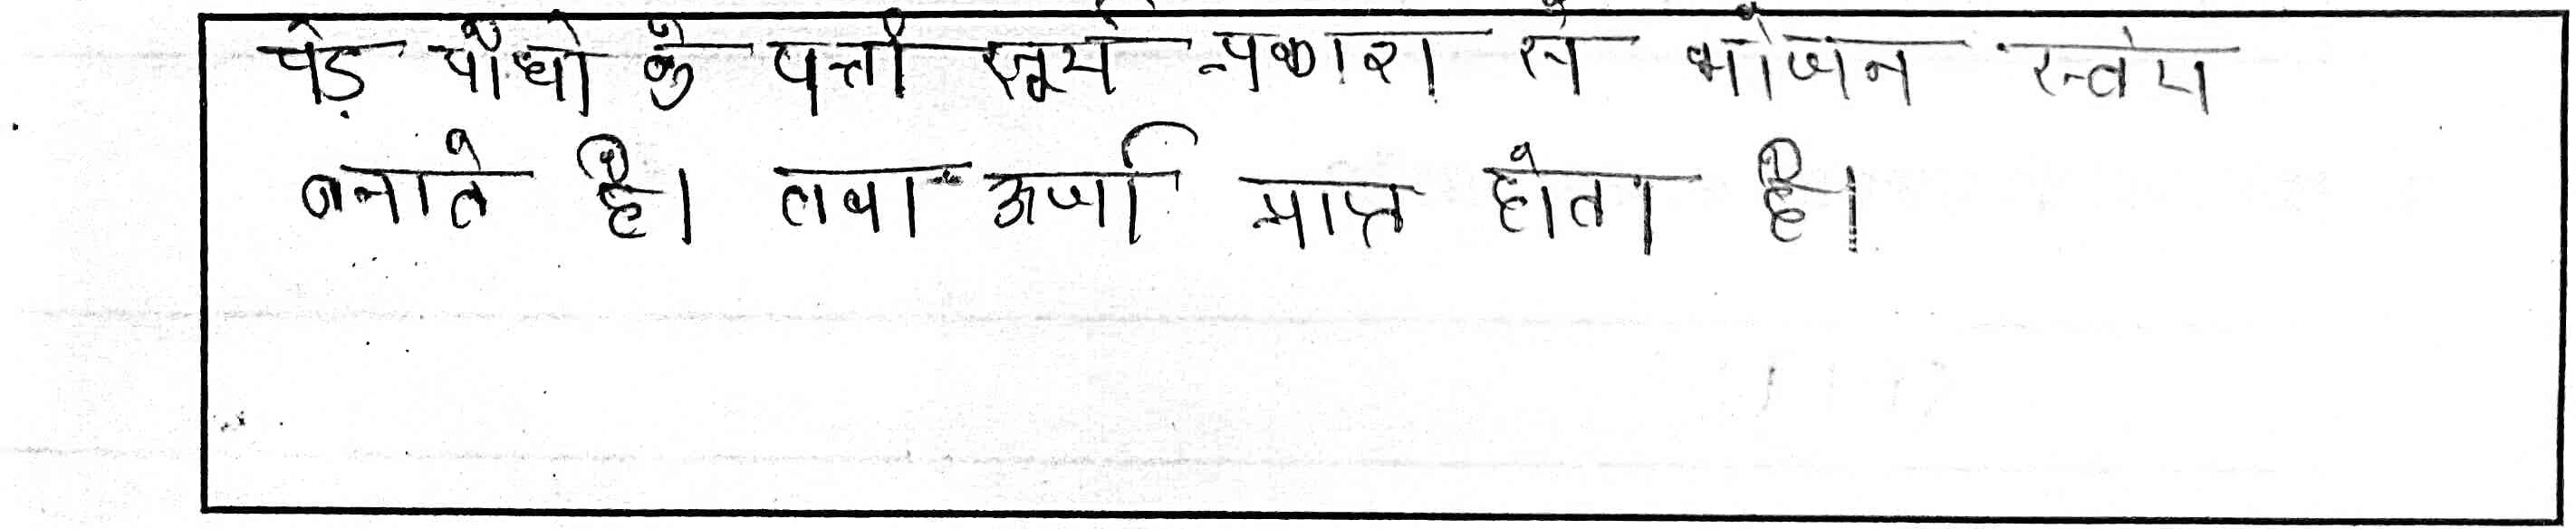 पेड़ पौधो के पत्ती सूर्य प्रकाश से भोजन स्वंय
बनाते है। तथा ऊर्जा प्राप्त होता है।